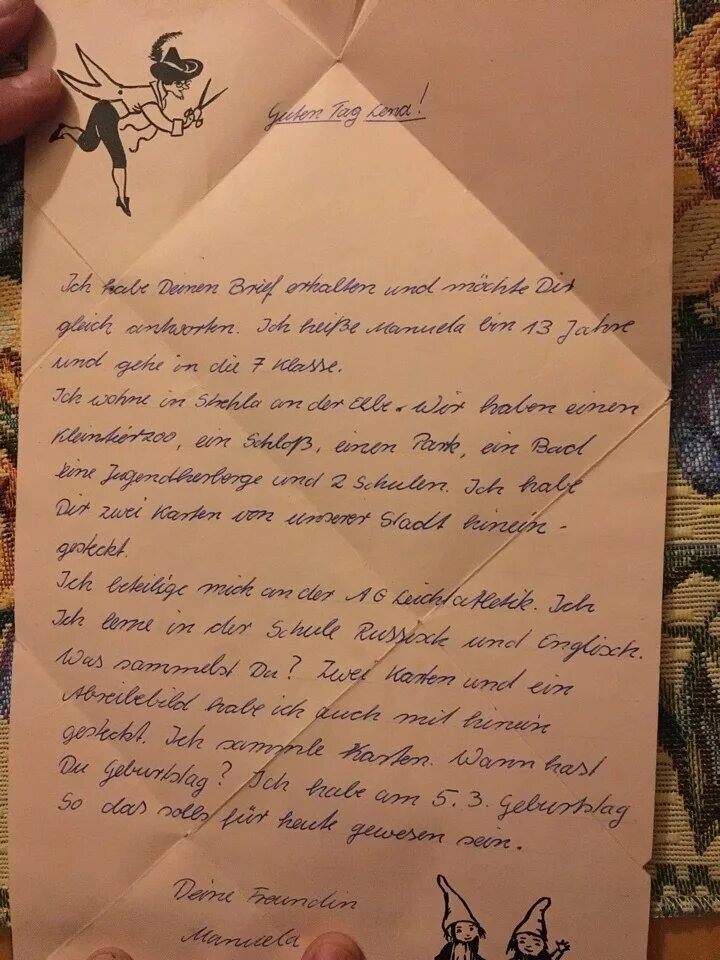 Guten Tag Lena!
Ich habe Deinen Brief erhalten und möchte Dir
gleich antworten. Ich heiße Manuela bin 13 Jahre
und gehe in die 7 Klasse.
Ich wohne in Strehla an der Elbe. Wir haben einen
Kleintierzoo, ein Schloß, einen Park, ein Bad
eine Jugendherberge und 2 Schulen. Ich habe
Dir zwei Karten von unserer Stadt hinein-
gesteckt.
Ich beteilige mich an der AG Leichtathletik. Ich
Ich lerne in der Schule Russisch und Englisch.
Was sammelst Du? Zwei Karten und ein
Abreibebild habe ich auch mit hinein
gesteckt. Ich sammle Karten. Wann hast
Du Geburtstag? Ich habe am 5.3. Geburtstag
So das solls für heute gewesen sein.
Deine Freundin
Manuela